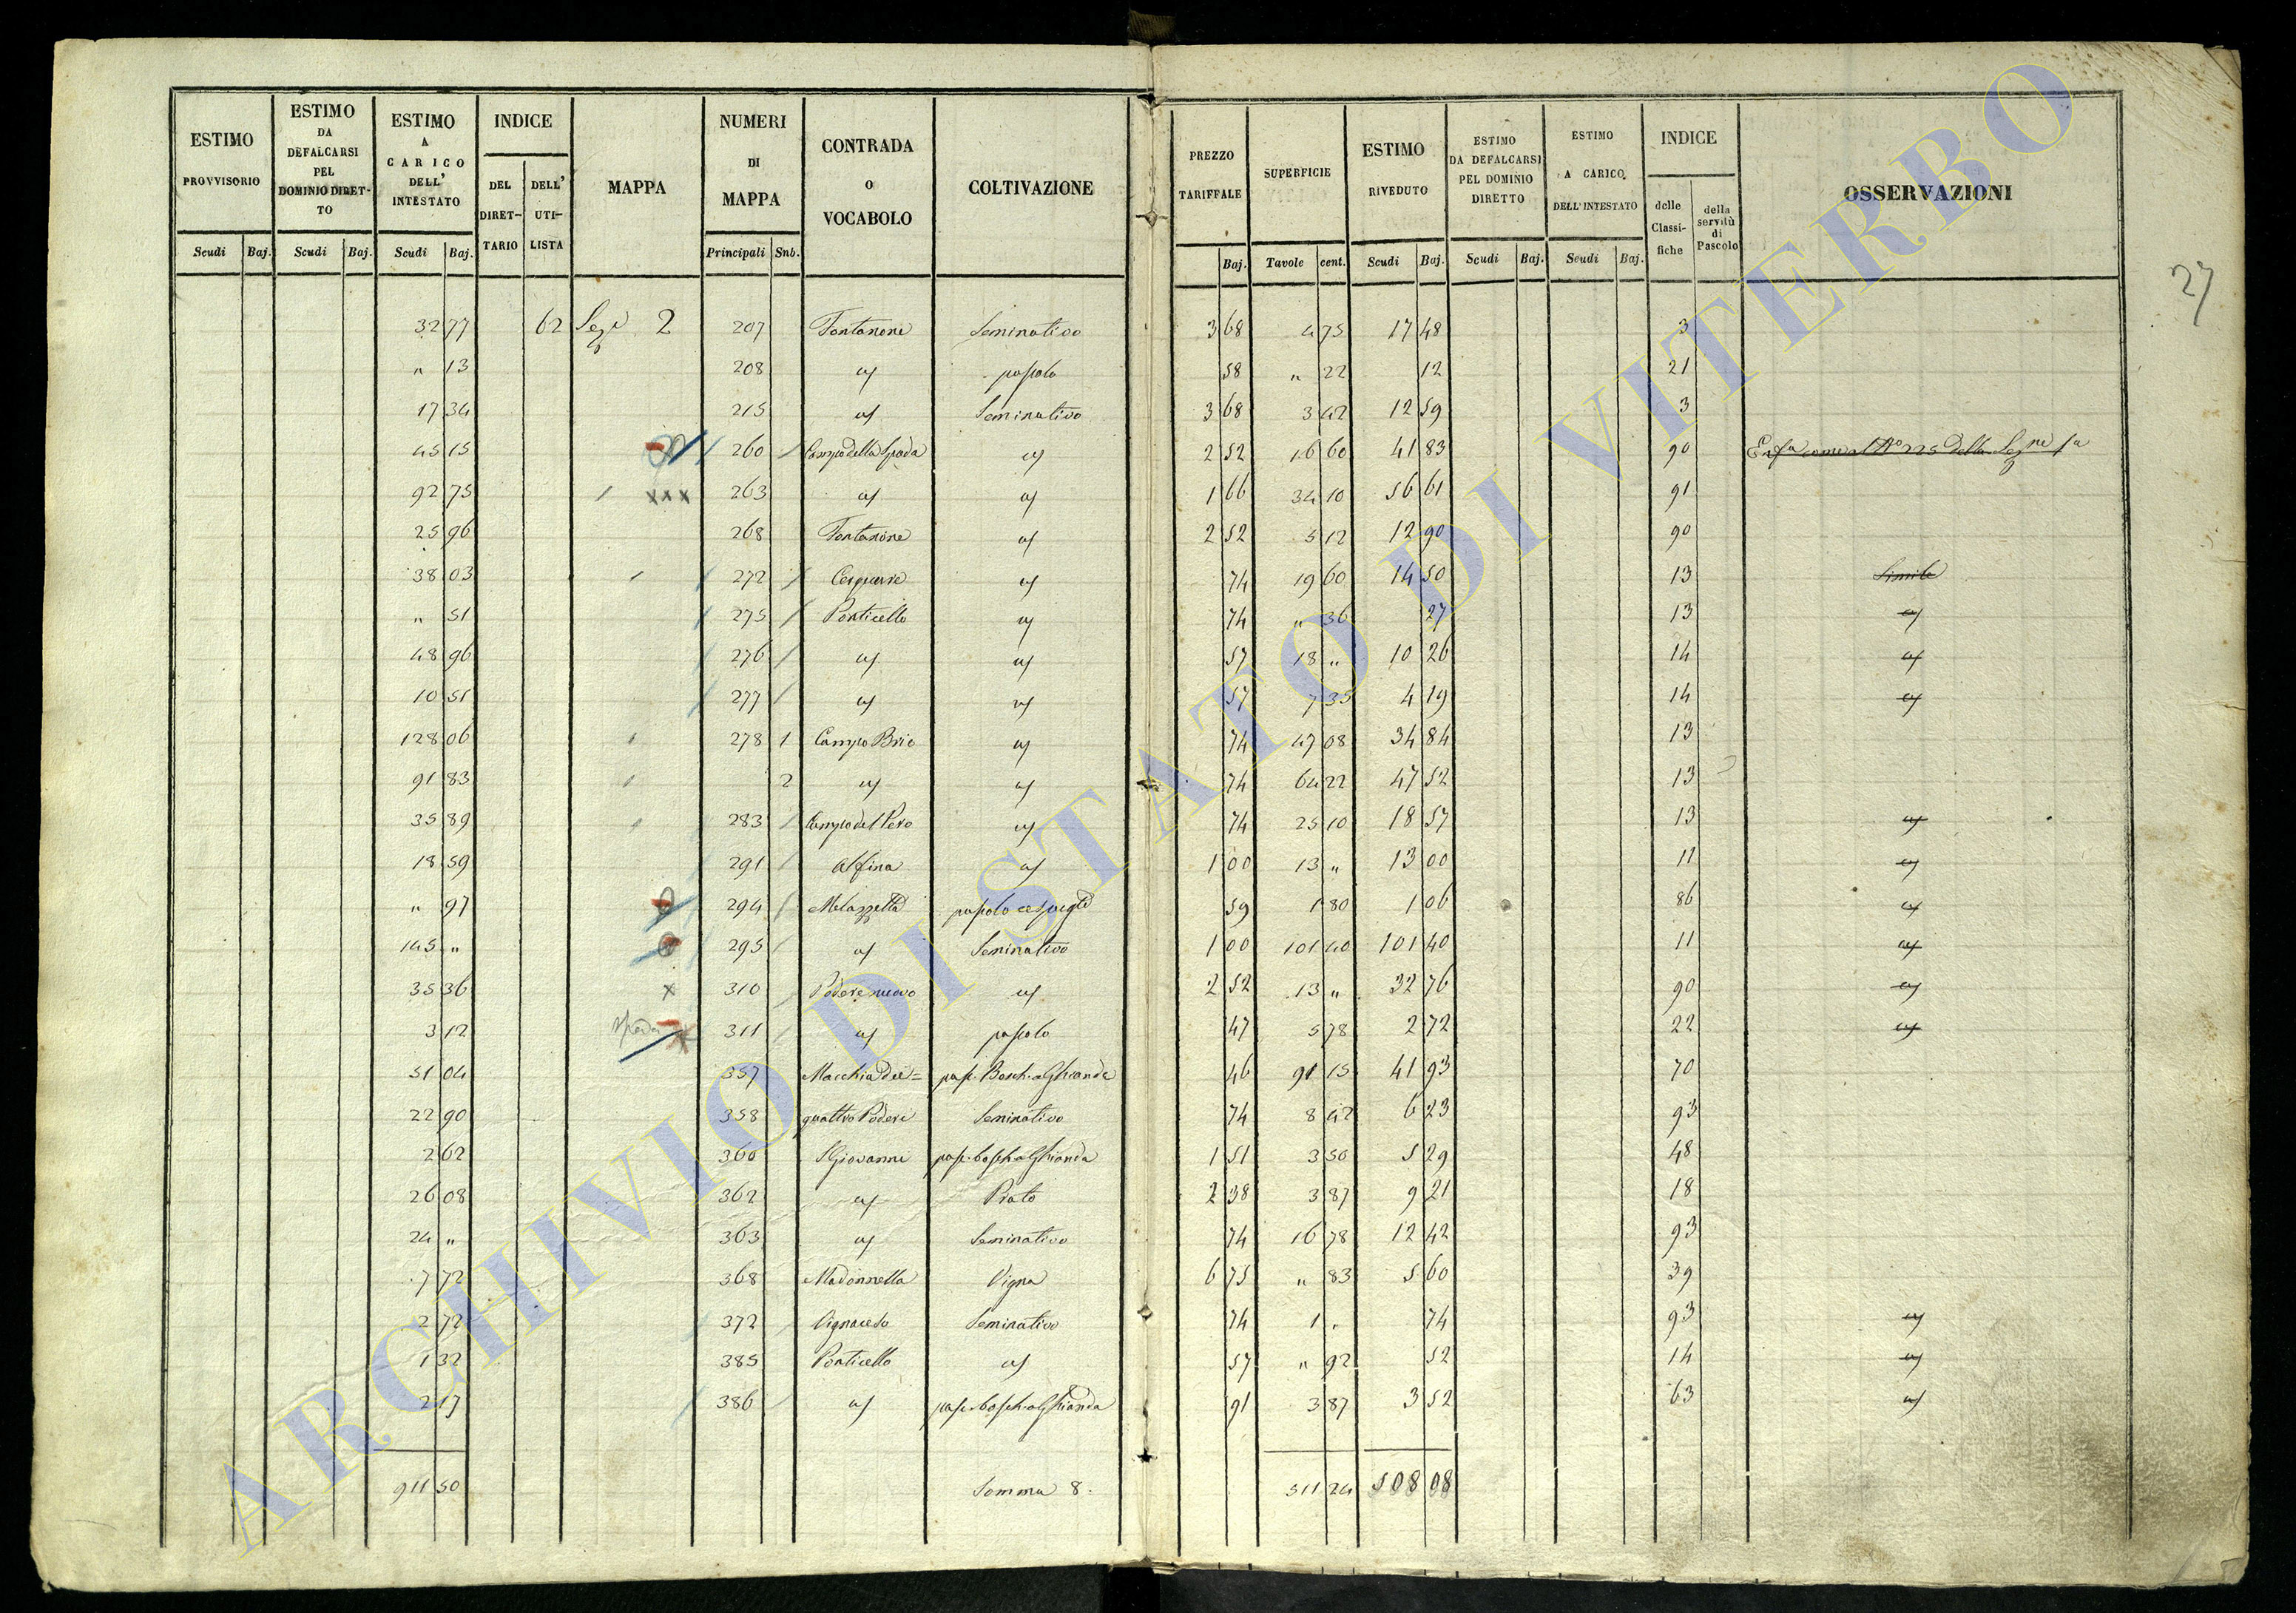 ESTIMO PROVVISORIO | ESTIMO DA DEFALCARSI PEL DOMINIO DIRETTO | ESTIMO A CARICO DELL' INTESTATO | INDICE | MAPPA | NUMERI DI MAPPA | CONTRADA O VOCABOLO | COLTIVAZIONE | PREZZO TARIFFALE | SUPERFICIE | ESTIMO RIVEDUTO | ESTIMO DA DEFALCARSI PEL DOMINIO DIRETTO | ESTIMO A CARICO DELL'INTESTATO | INDICE | OSSERVAZIONI
DEL DIRETTARIO | DELL' UTILISTA | delle Classifiche | della servitù di Pascolo
Scudi | Baj. | Scudi | Baj. | Scudi | Baj. | Principali | Snb. | Baj. | Tavole | cent. | Scudi | Baj. | Scudi | Baj. | Scudi | Baj.
27
32 77 | 62 | Sez.e 2 | 207 | Fontanone | Seminativo | 3 68 | 4 75 | 17 48 | 3
" 13 | 208 | a/ | pascolo | 58 | " 22 | 12 | 21
17 34 | 215 | a/ | Seminativo | 3 68 | 3 42 | 12 59 | 3
45 15 | 260 | Campo della Spada | a/ | 2 52 | 16 60 | 41 83 | 90 | come al No 225 della Sez.ne 1a
92 75 | xxx | 263 | a/ | a/ | 1 66 | 34 10 | 56 61 | 91
25 96 | 268 | Fontanone | a/ | 2 52 | 5 12 | 12 90 | 90
38 03 | 272 | a/ | 74 | 19 60 | 14 50 | 13 | Simile
" 51 | 275 | Ponticello | a/ | 74 | " 36 | 27 | 13 | a/
48 96 | 276 | a/ | a/ | 57 | 18 " | 10 26 | 14 | a/
10 51 | 277 | a/ | a/ | 57 | 7 35 | 4 19 | 14 | a/
128 06 | 278 1 | Campo Brie | a/ | 74 | 47 08 | 34 84 | 13
91 83 | 2 | a/ | a/ | 74 | 64 22 | 47 52 | 13
35 89 | 283 | Campo del Pero | a/ | 74 | 25 10 | 18 57 | 13 | a/
18 59 | 291 | Alfina | a/ | 1 00 | 13 " | 13 00 | 11 | a/
" 97 | 294 | Melazzetta | pascolo cespugl | 59 | 1 80 | 1 06 | 86 | a/
145 " | 295 | a/ | Seminativo | 1 00 | 101 40 | 101 40 | 11 | a/
35 36 | x | 310 | Podere nuovo | a/ | 2 52 | 13 " | 32 76 | 90 | a/
3 12 | 311 | a/ | pascolo | 47 | 5 78 | 2 72 | 22 | a/
51 04 | 357 | Macchia dei= | pasc. Bosch. a Ghianda | 46 | 91 15 | 41 93 | 70
22 90 | 358 | quattro Poderi | Seminativo | 74 | 8 42 | 6 23 | 93
2 62 | 360 | S Giovanni | pasc. bosch a Ghianda | 1 51 | 3 50 | 5 29 | 48
26 08 | 362 | a/ | Prato | 2 38 | 3 87 | 9 21 | 18
24 " | 363 | a/ | Seminativo | 74 | 16 78 | 12 42 | 93
7 72 | 368 | Madonnella | Vigna | 6 75 | " 83 | 5 60 | 39
2 72 | 372 | Seminativo | 74 | 1 " | 74 | 93 | a/
1 32 | 385 | Ponticello | a/ | 57 | " 92 | 52 | 14 | a/
2 17 | 386 | a/ | pasc. bosch. a Ghianda | 91 | 3 87 | 3 52 | 63 | a/
911 50 | Somma 8. | 511 24 | 508 08
ARCHIVIO DI STATO DI VITERBO